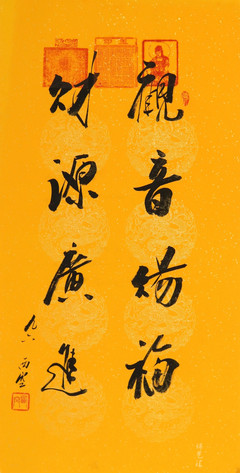 觀音賜福
財源廣進